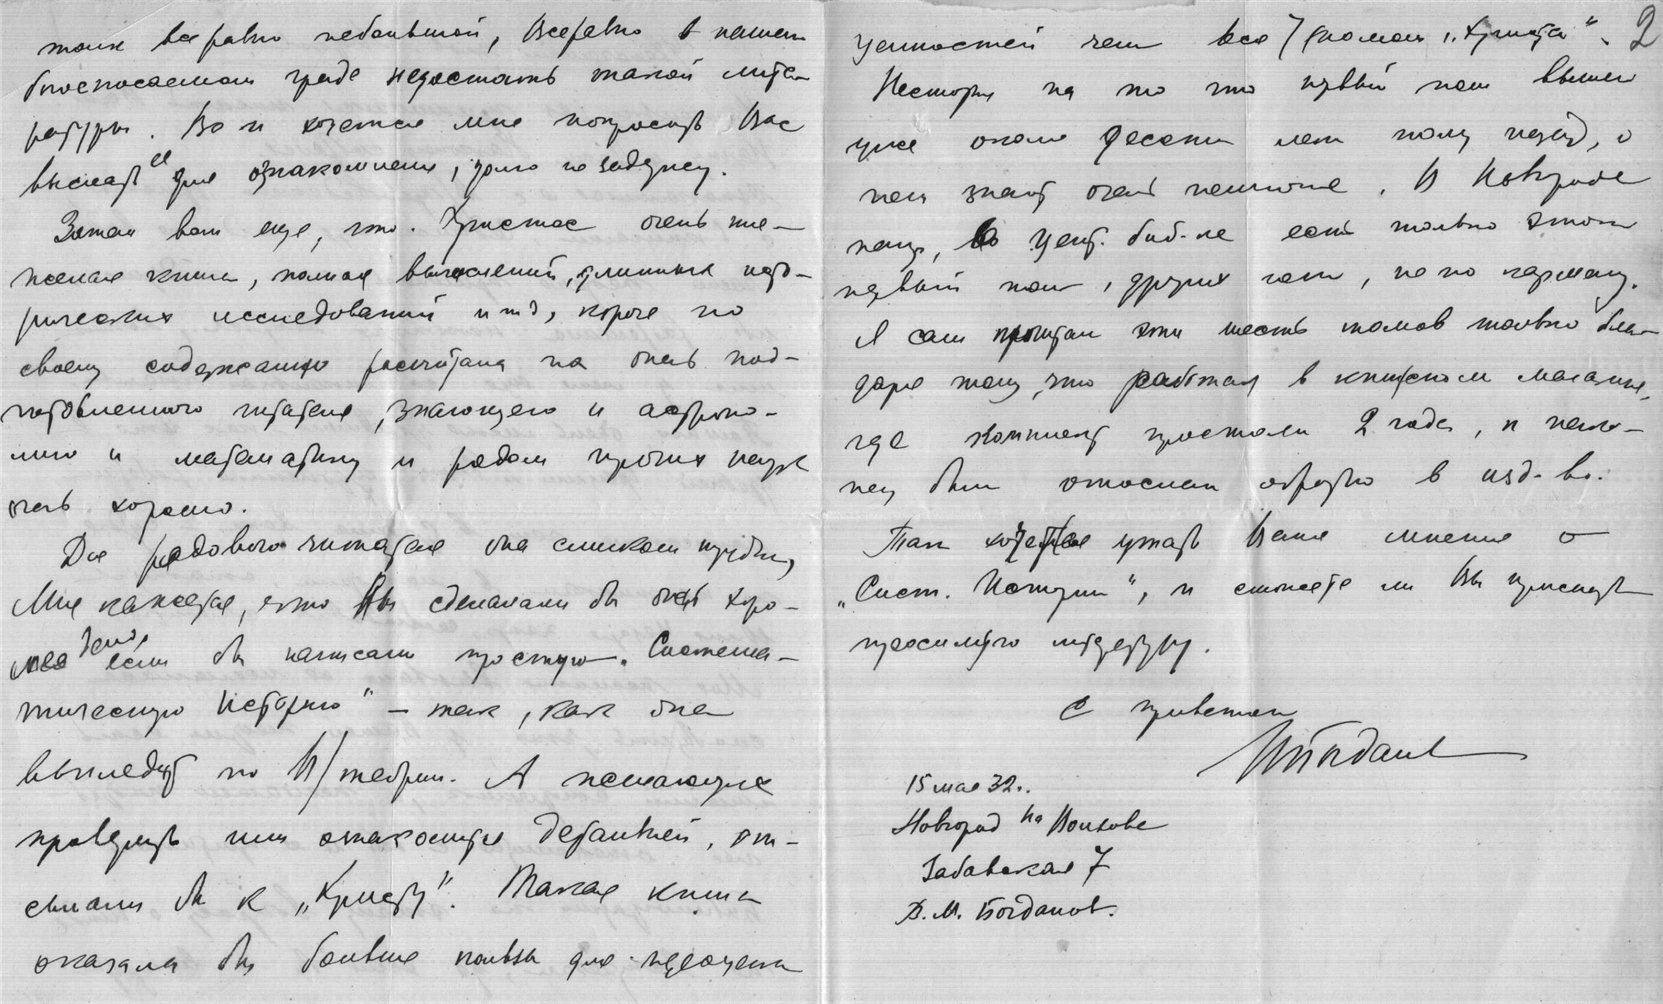 также все равно небольшой, Все равно в нашем
богоспасаемом граде недостать такой лите-
ратуры. Вот и хочется мне попросить Вас
выслать ее для ознакомления, долго не задержу.
Затем вот еще, что. Христос очень тя-
желая книга, полная вычислений, длинных исто-
рических исследований и т.д, короче по
своему содержанию рассчитана на очень под-
готовленного читателя, знающего и астроно-
мию и математику и рядом прочих наук
очень хорошо.
Для рядового читателя она слишком трудна,
Мне кажется, что Вы сделали бы очень хоро-
шее дело если бы написали простую „Система-
тическую Историю" – так, как она
выглядит по В/теории. А желающих
проверить или ознакомиться детальней, от-
сылали бы к „Христу". Такая книга
оказала бы больше пользы для переоценки
ценностей чем все 7 томов „Христа". 2
Несмотря на то что первый том вышел
уже около десяти лет тому назад, о
нем знают очень немногие. В Новгороде
напр, в Цент. биб-ке есть только этот
первый том, других нет, не по карману.
Я сам прочитал эти шесть томов только бла-
даря тому, что работал в книжном магазине,
где комплект простоял 2 года, и нако-
нец был отослан обратно в изд-во.
Так хочется узнать Ваше мнение о
„Сист. Истории", и сможете ли Вы прислать
просимую литературу.
С приветом
ДБогданов
15 мая 32..
Новгород на Волхове
Забавская 7
Д. М. Богданов.